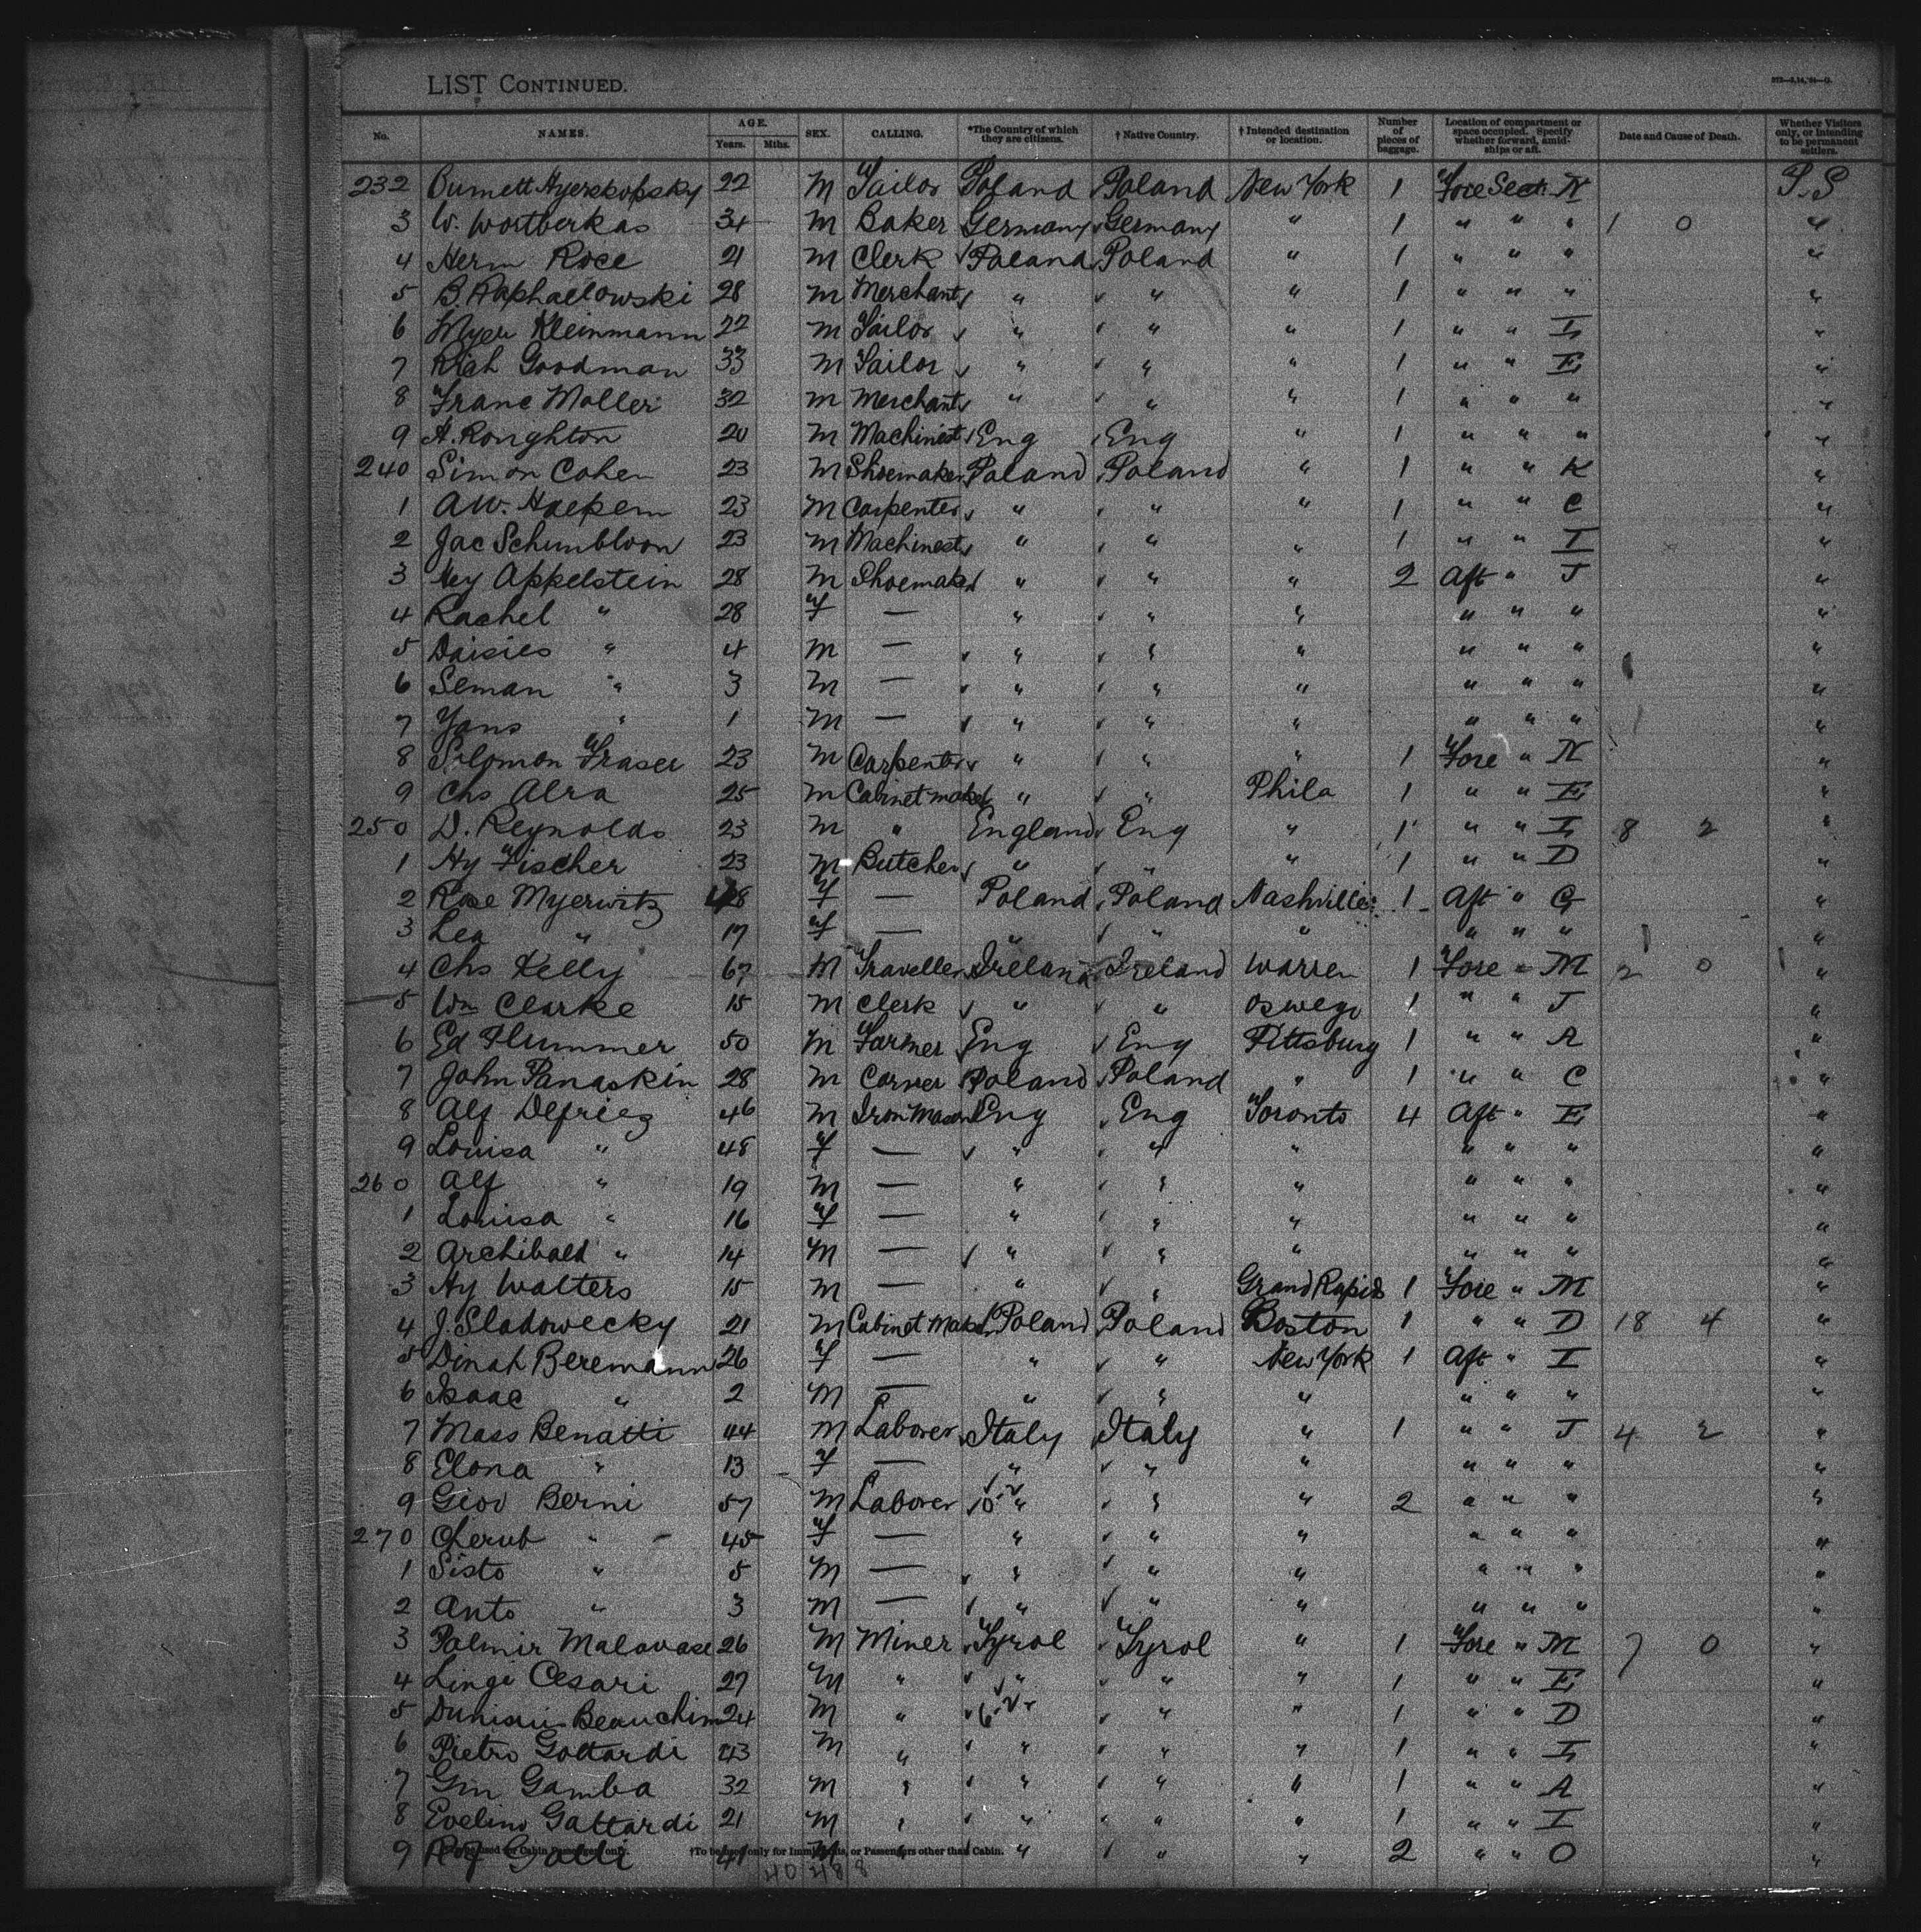 LIST CONTINUED.
No. NAMES. AGE. Years. Mths. SEX. CALLING. *The Country of which they are citizens. † Native Country. † Intended destination or location. Number of pieces of baggage. Location of compartment or space occupied. Specify whether forward, amidships or aft. Date and Cause of Death. Whether Visitors only, or intending to be permanent settlers.
232 Burnett 22 M Tailor Poland Poland New York 1 Fore Sect. N P.S
3 W. Wostberkas 34 M Baker Germany Germany " 1 " " " 1 0 "
4 Herm Rose 21 M Clerk Poland Poland " 1 " " " "
5 B. Raphaelowski 28 M Merchant " " " 1 " " " "
6 Myer Kleinmann 22 M Tailor " " " 1 " " I "
7 Rich Goodman 33 M Tailor " " " 1 " " E "
8 Franc Moller 32 M Merchant " " " 1 " " " "
9 A. Roughton 20 M Machinist Eng Eng " 1 " " " "
240 Simon Cohen 23 M Shoemaker Poland Poland " 1 " " K "
1 A.W. Haepem 23 M Carpenter " " " 1 " " C "
2 Jac Schimbloon 23 M Machinest " " " 1 " " I "
3 Hey Appelstein 28 M Shoemaker " " " 2 Aft " J "
4 Rachel " 28 f — " " " " " " "
5 Daisies " 4 M — " " " " " " "
6 Seman " 3 M — " " " " " " "
7 Yans " 1 M — " " " " " " "
8 Solomon Fraser 23 M Carpenter " " " 1 Fore " N "
9 Chs Alra 25 M Cabinet maker " " Phila 1 " " E "
250 D. Reynolds 23 M " England Eng " 1 " " I 8 2 "
1 Hy Fischer 23 M Butcher " " " 1 " " D "
2 Rose Myerwitz 48 f — Poland Poland Nashville 1 Aft " G "
3 Lea " 17 f — " " " " " " "
4 Chs Kelly 67 M Traveller Ireland Ireland Warren 1 Fore " M 2 0 "
5 Wm Clarke 15 M Clerk " " Oswego 1 " " J "
6 Ed Plummer 50 M Farmer Eng Eng Pittsburg 1 " " A "
7 John Panaskin 28 M Carver Poland Poland " 1 " " C "
8 Alf Defriez 46 M Iron Mason Eng Eng Toronto 4 Aft " E "
9 Louisa " 48 f — " " " " " " "
260 Alf " 19 M — " " " " " " "
1 Louisa " 16 f — " " " " " " "
2 Archibald " 14 M — " " " " " " "
3 Hy Walters 15 M — " " Grand Rapids 1 Fore " M "
4 J. Sladowecky 21 M Cabinet Maker Poland Poland Boston 1 " " D 18 4 "
5 Dinah Beremann 26 f — " " New York 1 Aft " I "
6 Isaac " 2 M — " " " " " " "
7 Mass Benatti 44 M Laborer Italy Italy " 1 " " J 4 2 "
8 Elona " 13 f — " " " " " " "
9 Giov Berni 57 M Laborer " " " 2 " " " "
270 Cherub " 45 f — " " " " " " "
1 Sisto " 5 M — " " " " " " "
2 Anto " 3 M — " " " " " " "
3 Palmir Malavase 26 M Miner Tyrol Tyrol " 1 Fore " M 7 0 "
4 Lingi Cesari 27 M " " " " 1 " " E "
5 Beauchim 24 M " " " " 1 " " D "
6 Pietro Gottardi 43 M " " " " 1 " " I "
7 Gamba 32 M " " " " 1 " " A "
8 Evelino Gattardi 21 M " " " " 1 " " I "
9 Galli 41 M " " " " 2 " " O "
†To be used only for Immigrants, or Passengers other than Cabin.
40 48 8